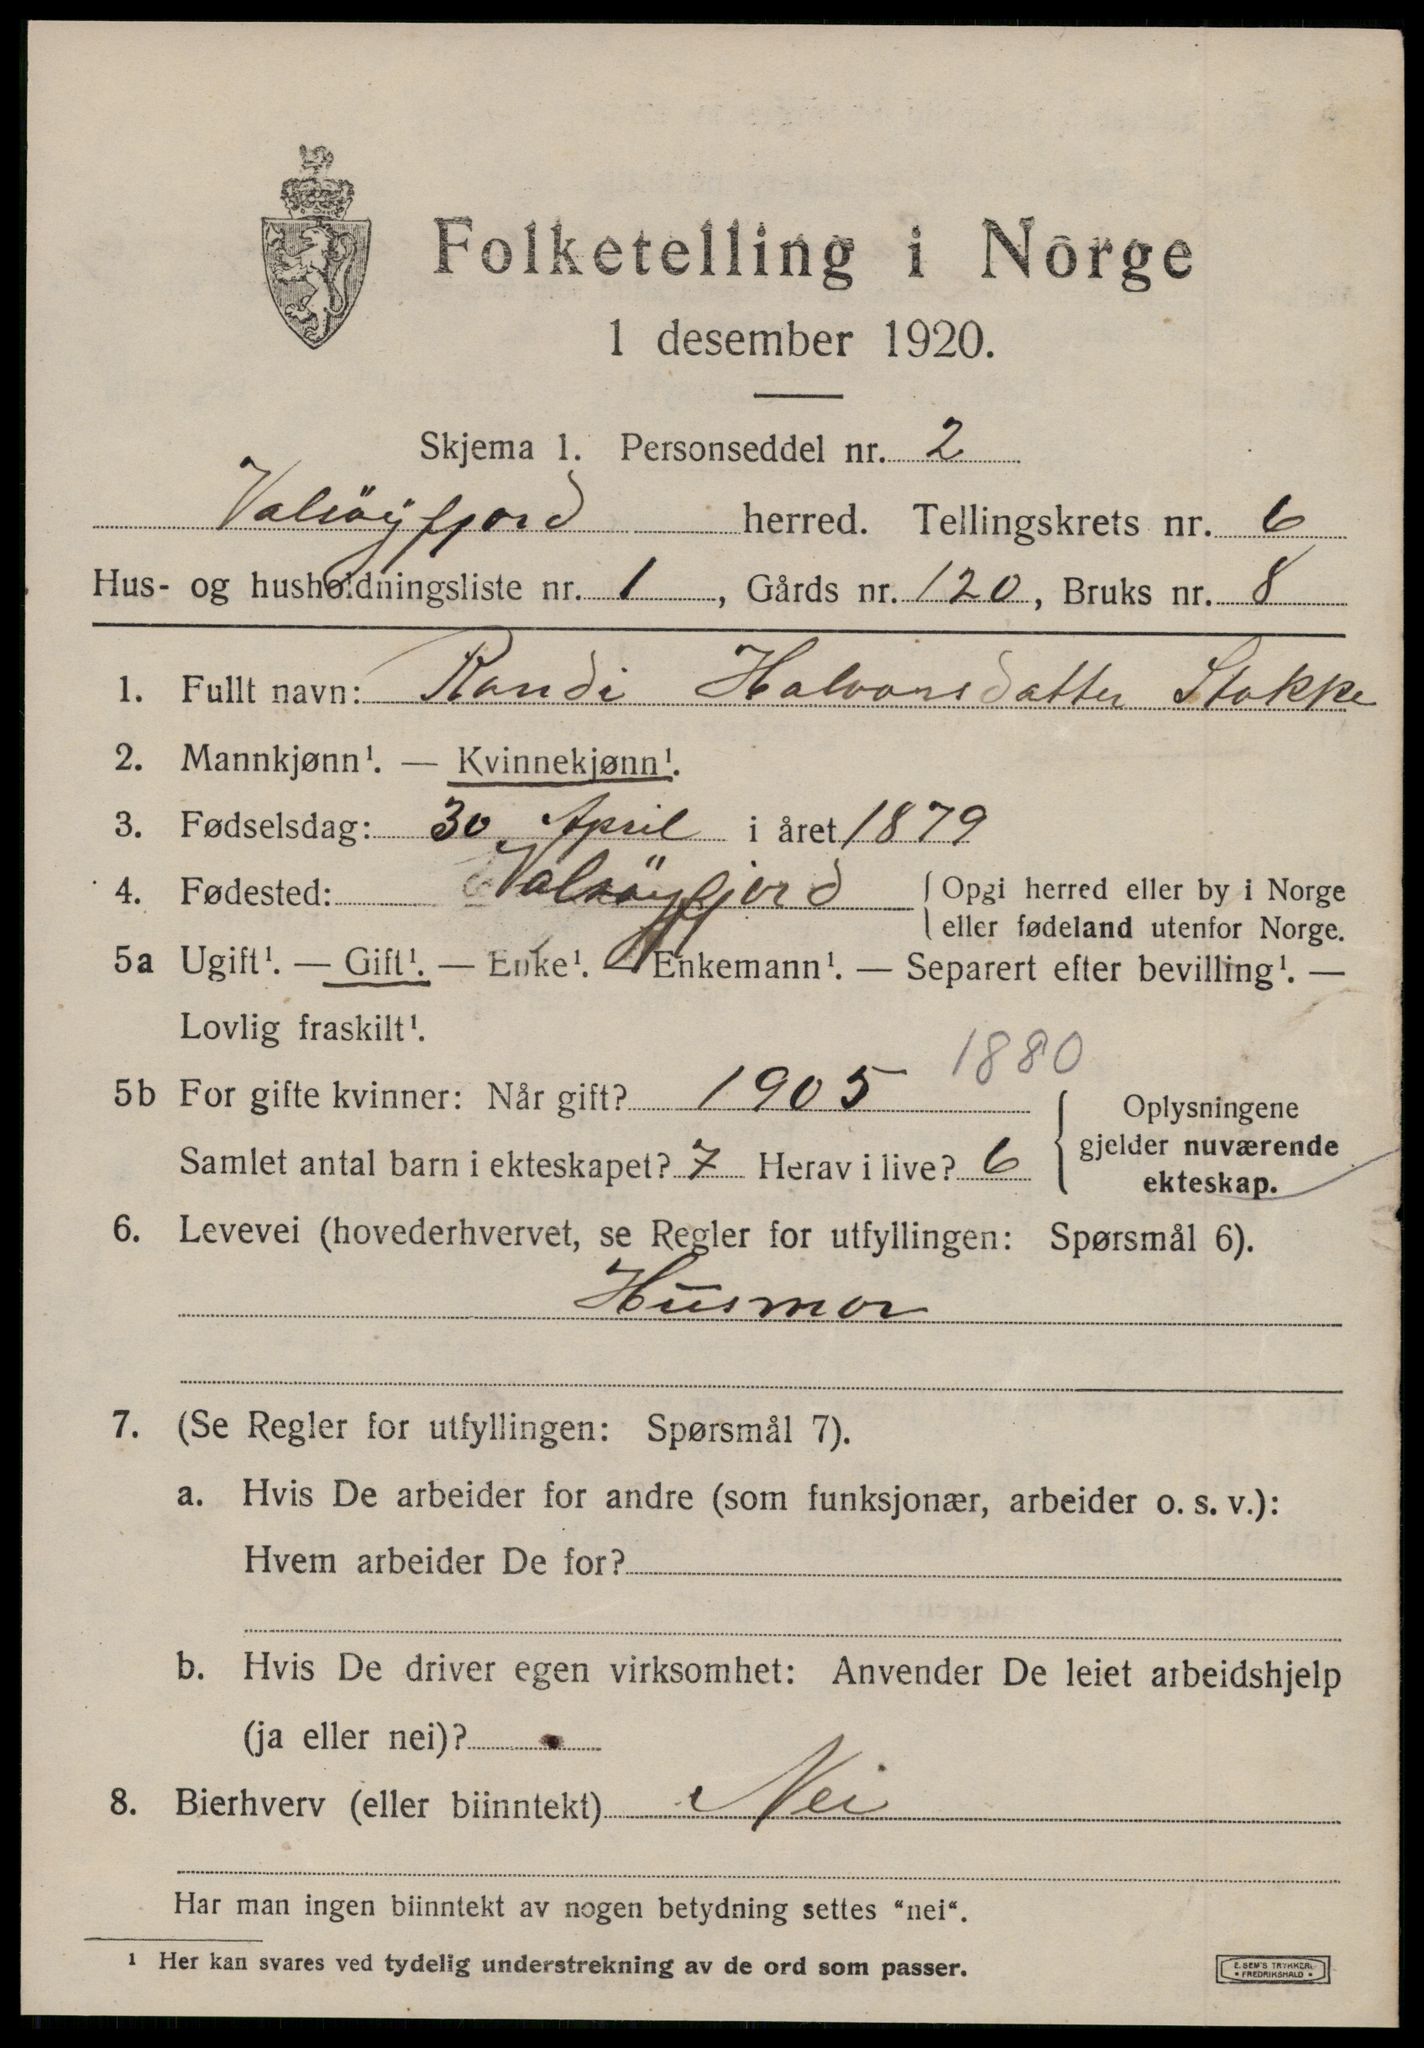 Folketelling i Norge
1 desember 1920.
Skjema 1. Personseddel nr. 2
Valsöyfjord herred. Tellingskrets nr. 6
Hus- og husholdningsliste nr. 1, Gårds nr. 120, Bruks nr. 8
1. Fullt navn: Randi Halvorsdatter Stokke
2. Mannkjønn¹. — Kvinnekjønn¹.
3. Fødselsdag: 30 April i året 1879
4. Fødested: Valsöyfjord { Opgi herred eller by i Norge
eller fødeland utenfor Norge.
5a Ugift¹. — Gift¹. — Enke¹. — Enkemann¹. — Separert efter bevilling¹. —
Lovlig fraskilt¹.
1880
5b For gifte kvinner: Når gift? 1905
Samlet antal barn i ekteskapet? 7 Herav i live? 6
{ Oplysningene
gjelder nuværende
ekteskap.
6. Levevei (hovederhvervet, se Regler for utfyllingen: Spørsmål 6).
Husmor
7. (Se Regler for utfyllingen: Spørsmål 7).
a. Hvis De arbeider for andre (som funksjonær, arbeider o. s. v.):
Hvem arbeider De for?
b. Hvis De driver egen virksomhet: Anvender De leiet arbeidshjelp
(ja eller nei)?
8. Bierhverv (eller biinntekt) Nei
Har man ingen biinntekt av nogen betydning settes “nei“.
¹ Her kan svares ved tydelig understrekning av de ord som passer.
E. SEM'S TRYKKERI
• FREDRIKSHALD •